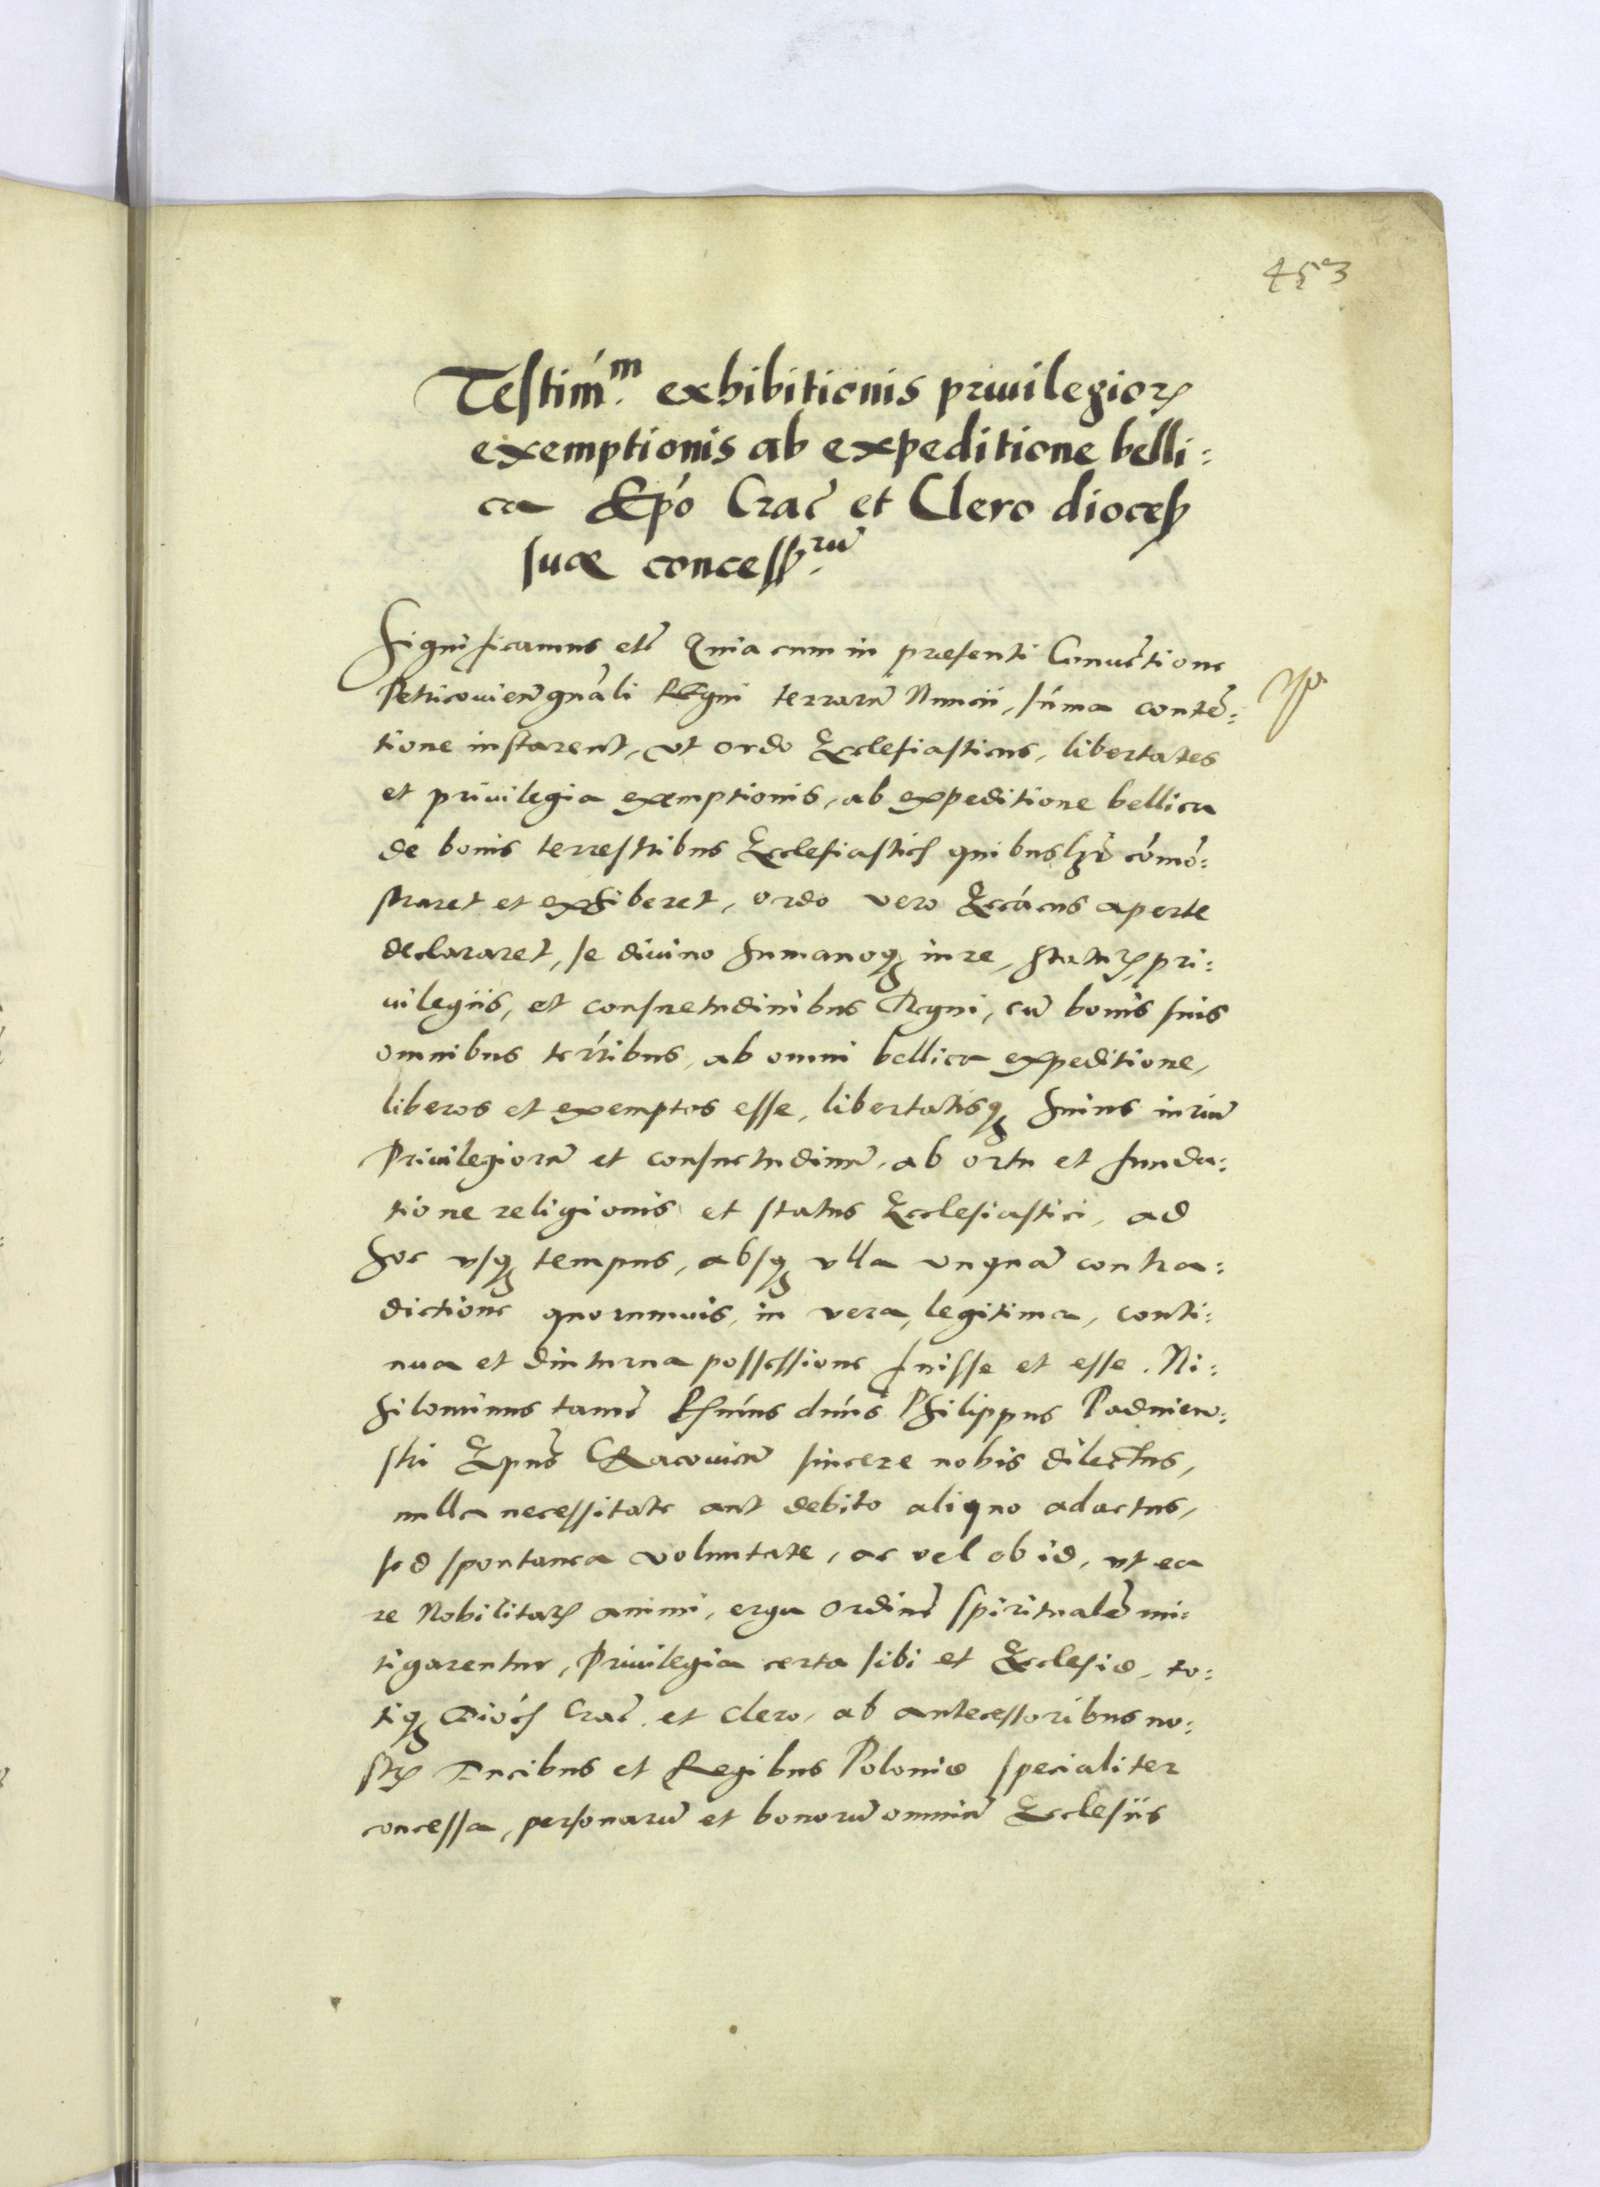 453
Testim̄.m exhibitionis priuilegior̃
exemptionis ab expeditione belli:
ca Ep̄o Crac̃ et Clero dioces̃
suæ concess̃.rũ
Significamus etc̃ Quia cum in præsenti Conuẽtione
Petricouieñ gnãli Regni terrarũ Nuncii, sũma contẽ:
tione instarent, vt ordo Ecclesiasticus, libertates
et priuilegia exemptionis, ab expeditione bellica
de bonis terrestribus Ecclesiastic̃ quibuslꝫ cõmõ:
straret et exhiberet, ordo vero Eccãcus aperte
declararet, se diuino humanoqꝫ iure, statut̃, pri:
uilegiis, et consuetudinibus Regni, cũ bonis suis
omnibus terr̃ribus, ab omni bellica expeditione,
liberos et exemptos esse, libertatisqꝫ huius iuriũ
Priuilegiorũ et consuetudinũ, ab ortu et funda:
tione religionis et status Ecclesiastici, ad
hoc vsqꝫ tempus, absqꝫ vlla vnquã contra:
dictione quorumuis, in vera, legitima, conti:
nua et diuturna possessione fuisse et esse. Ni:
hilominus tamẽ Rs̃mus dñus Philippus Padniew:
ski Ep̃us Cracouieñ sincere nobis dilectus,
nulla necessitate aut debito aliquo adactus,
sed spontanea voluntate, ac vel ob id, vt ea
re Nobilitat̃ animi, erga ordinẽ spiritualẽ mi:
tigarentur, Priuilegia certa sibi et Ecclesiæ, to:
tiqꝫ Dioc̃ Crac̃. et clero, ab antecessoribus no:
str̃ Ducibus et Regibus Poloniæ specialiter
concessa, personarũ et bonorũ omniũ Ecclesiis